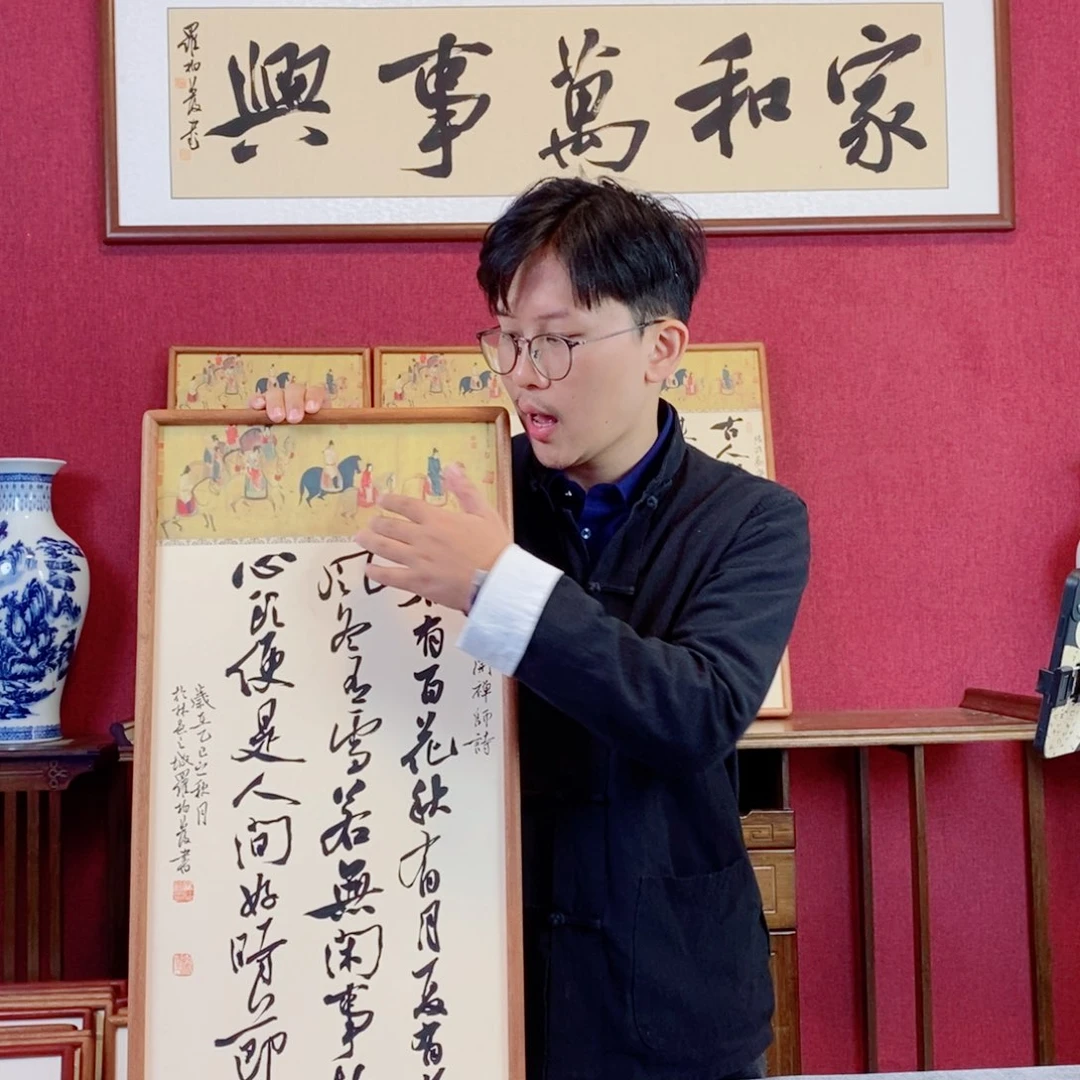 家和萬事興
羅書
古人
開禪師詩
有百花秋有月夏有
風冬有雪若無閑事
心頭便是人間好時節
歲在乙巳之秋月
於林之城羅書